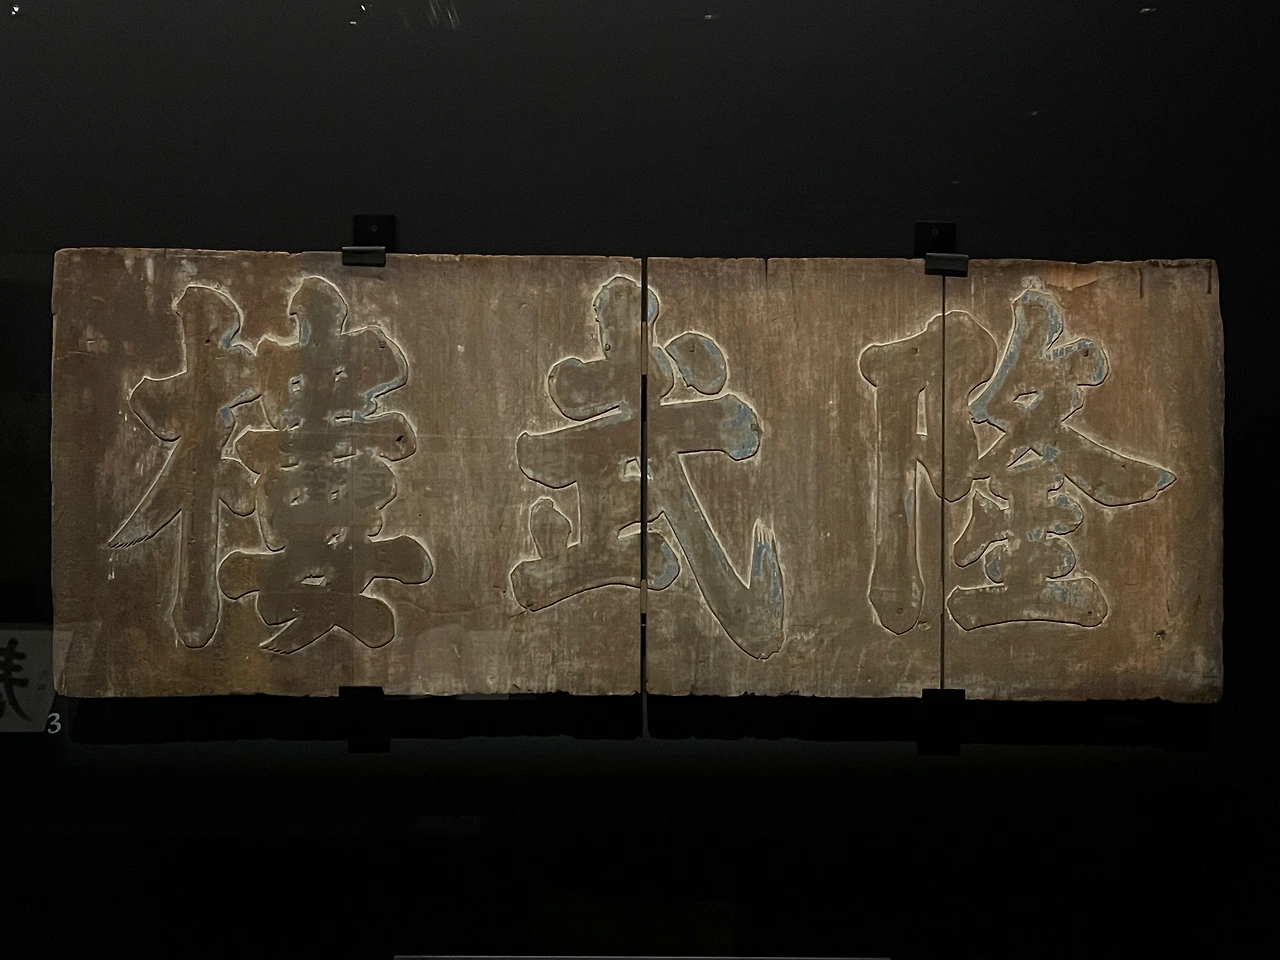 隆武樓
3